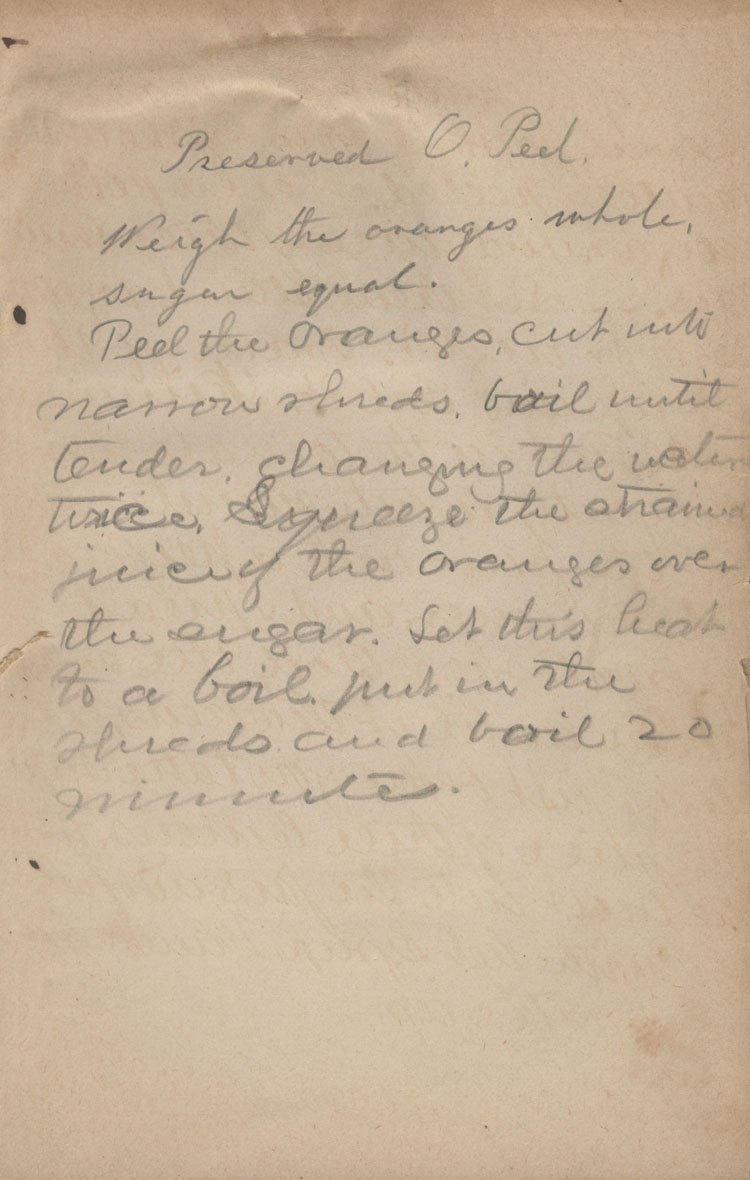 Preserved O. Peel.
Weigh the oranges whole,
sugar equal.
Peel the oranges, cut into
narrow shreds, boil until
tender, changing the water
twice. Squeeze the strained
juice of the oranges over
the sugar. Let this heat
to a boil. put in the
shreds and boil 20
minutes.